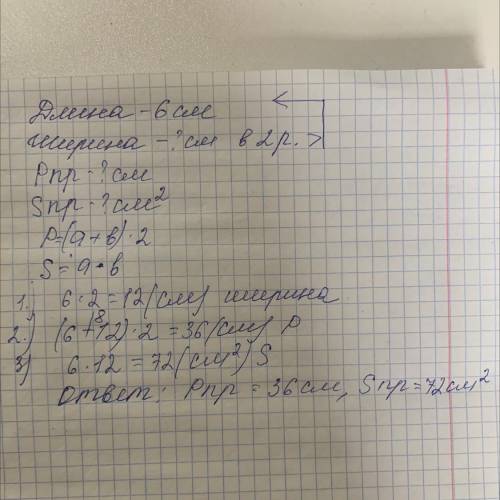 Длина - 6 см
Ширина - ? см в 2 р. >
Pпр - ? см
Sпр - ? см²
P=(a+b)·2
S=a·b
1.) 6·2=12(см) ширина
2.) (6+12)·2=36(см) P
3) 6·12=72(см²) S
Ответ: Pпр = 36 см, Sпр=72 см²